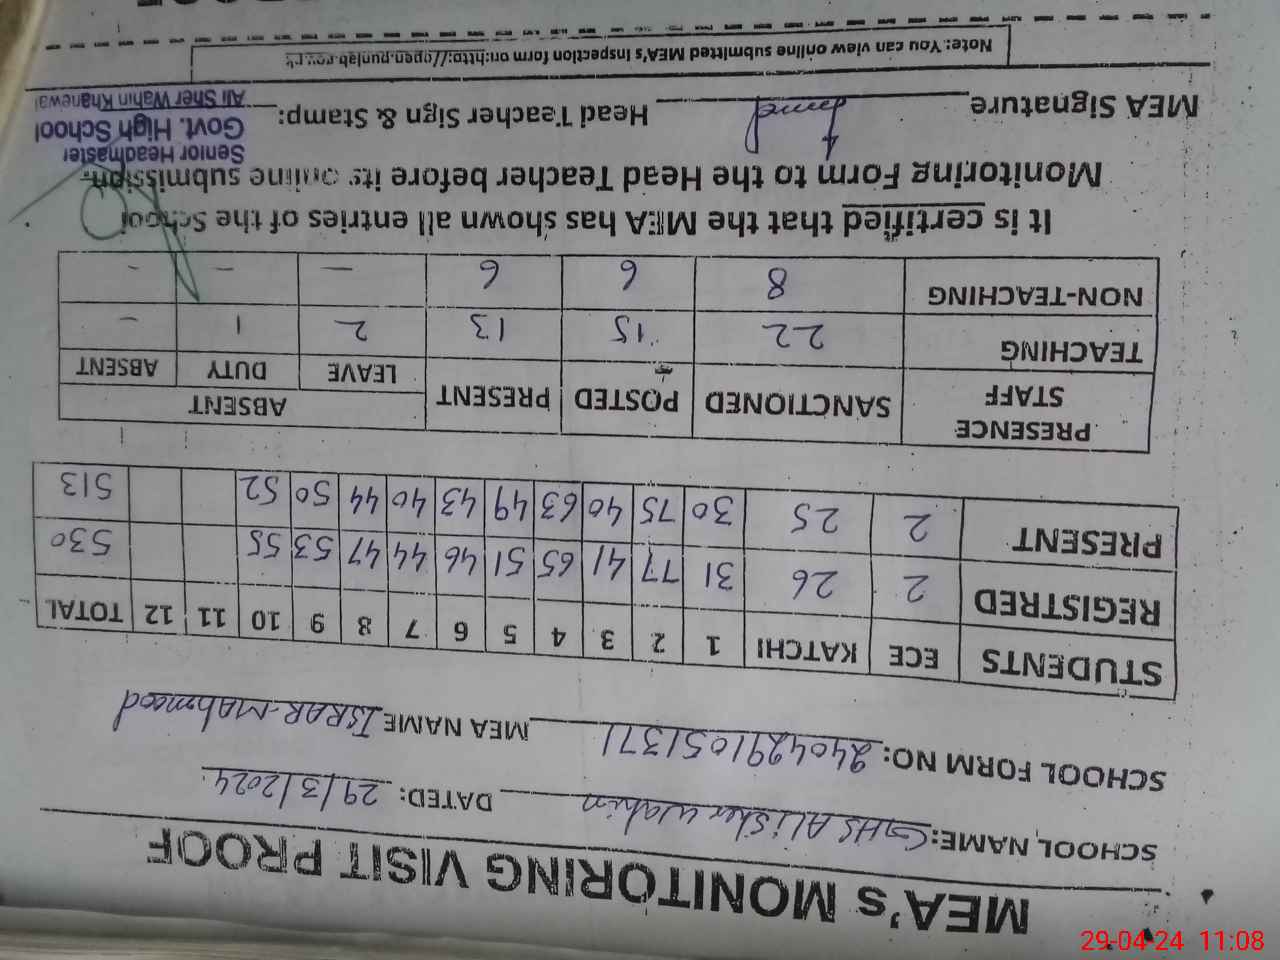 MEA's MONITORING VISIT PROOF
SCHOOL NAME: GHS Ali Sher wahin DATED: 29/3/2024
SCHOOL FORM NO: 2404291051371 MEA NAME ISRAR-Mahmood
STUDENTS ECE KATCHI 1 2 3 4 5 6 7 8 9 10 11 12 TOTAL
REGISTRED 2 26 31 77 41 65 51 46 44 47 53 55 530
PRESENT 2 25 30 75 40 63 49 43 40 44 50 52 513
PRESENCE STAFF SANCTIONED POSTED PRESENT ABSENT
LEAVE DUTY ABSENT
TEACHING 22 15 13 2 1 -
NON-TEACHING 8 6 6 - - -
It is certified that the MEA has shown all entries of the School
Monitoring Form to the Head Teacher before its online submission.
MEA Signature Head Teacher Sign & Stamp:
Senior Headmaster
Govt. High School
Ali Sher Wahin Khanewal
Note: You can view online submitted MEA's Inspection form on:http://open.punjab.gov.pk
29-04-24 11:08